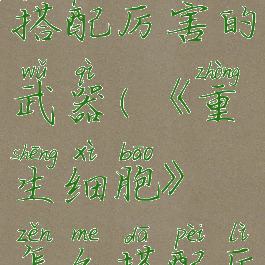 搭配厉害的
wǔ qì zhòng
武器(《重
shēng xì bāo
生细胞》
zěn me dā pèi lì
怎么搭配厉